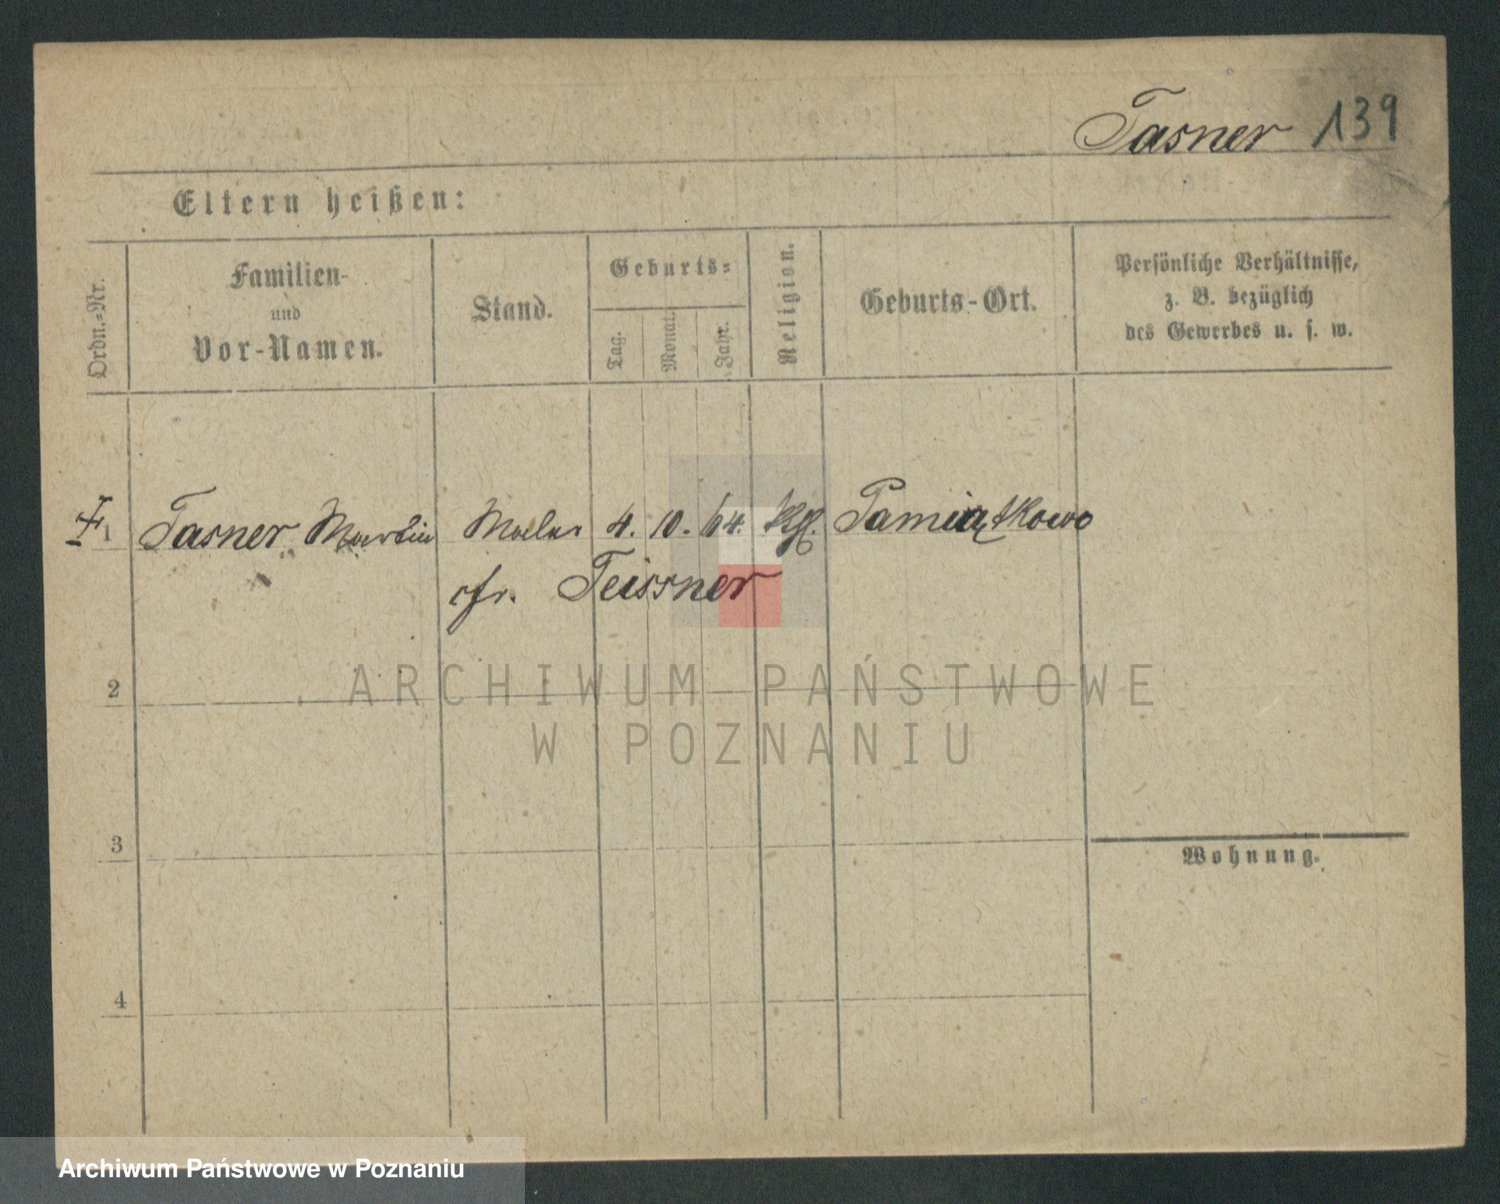 Tasner 139
Eltern heißen:
Ordn.-Nr.
Familien-
und
Vor-Namen.
Stand.
Geburts-
Tag.
Monat.
Jahr.
Religion.
Geburts-Ort.
Persönliche Verhältnisse,
z. B. bezüglich
des Gewerbes u. s. w.
1 Tasner Martin 4. 10. 64. Pamiątkowo
cfr. Teissner
2
ARCHIWUM PAŃSTWOWE
W POZNANIU
3
Wohnung.
4
Archiwum Państwowe w Poznaniu